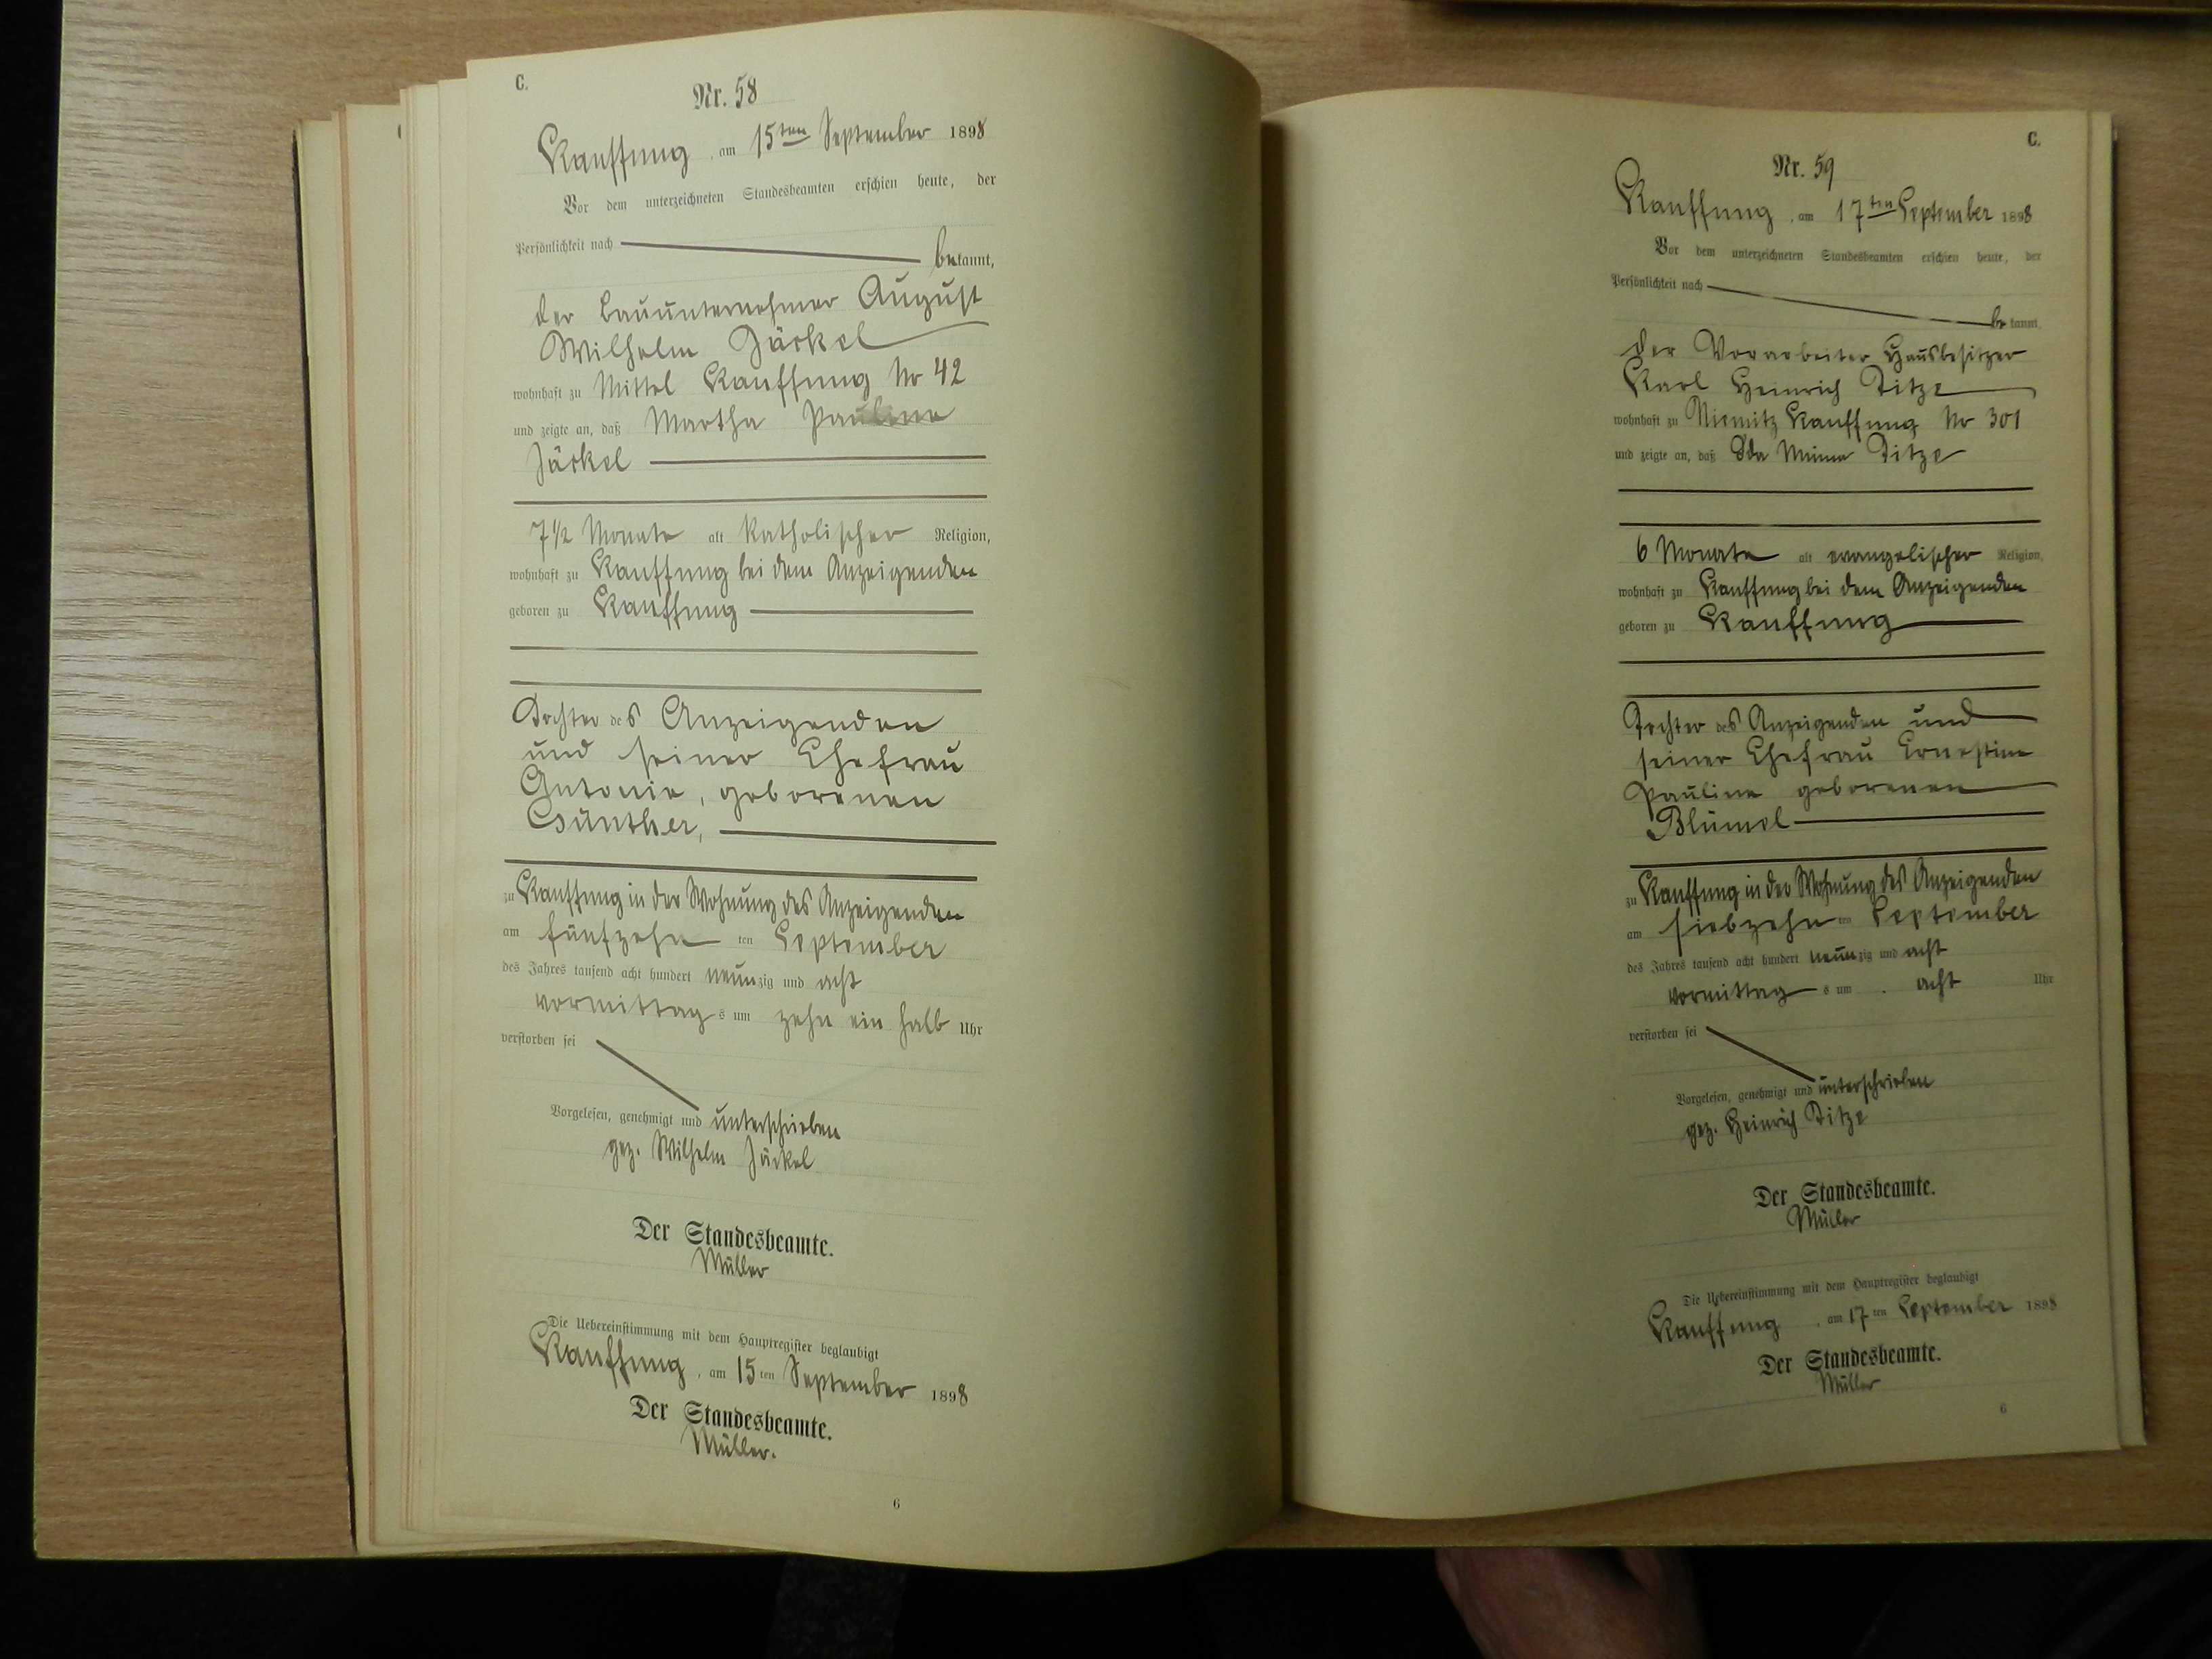 C.
Nr. 58
Kauffung, am 15ten September 1898
Vor dem unterzeichneten Standesbeamten erschien heute, der
Persönlichkeit nach
bekannt,
der Bauunternehmer August
Wilhelm Jäckel
wohnhaft zu Mittel Kauffung No 42
und zeigte an, daß Martha Pauline
Jäckel
7 1/2 Monate alt katholischer Religion,
wohnhaft zu Kauffung bei dem Anzeigenden
geboren zu Kauffung
Tochter des Anzeigenden
und seiner Ehefrau
Antonie, geborenen
Günther,
zu Kauffung in der Wohnung des Anzeigenden
am fünfzehn ten September
des Jahres tausend acht hundert neunzig und acht
vormittags um zehn ein halb Uhr
verstorben sei
Vorgelesen, genehmigt und unterschrieben
gez. Wilhelm Jäckel
Der Standesbeamte.
Müller
Die Uebereinstimmung mit dem Hauptregister beglaubigt
Kauffung, am 15ten September 1898
Der Standesbeamte.
Müller.
6
C.
Nr. 59
Kauffung, am 17ten September 1898
Vor dem unterzeichneten Standesbeamten erschien heute, der
Persönlichkeit nach
bekannt,
der Vorarbeiter Hausbesitzer
Karl Heinrich Titze
wohnhaft zu Niemitz Kauffung No 301
und zeigte an, daß Ida Minna Titze
6 Monate alt evangelischer Religion,
wohnhaft zu Kauffung bei dem Anzeigenden
geboren zu Kauffung
Tochter des Anzeigenden und
seiner Ehefrau Ernestine
Pauline geborenen
Blümel
zu Kauffung in der Wohnung des Anzeigenden
am siebzehn ten September
des Jahres tausend acht hundert neunzig und acht
vormittags um acht Uhr
verstorben sei
Vorgelesen, genehmigt und unterschrieben
gez. Heinrich Titze
Der Standesbeamte.
Müller
Die Uebereinstimmung mit dem Hauptregister beglaubigt
Kauffung, am 17ten September 1898
Der Standesbeamte.
Müller
6